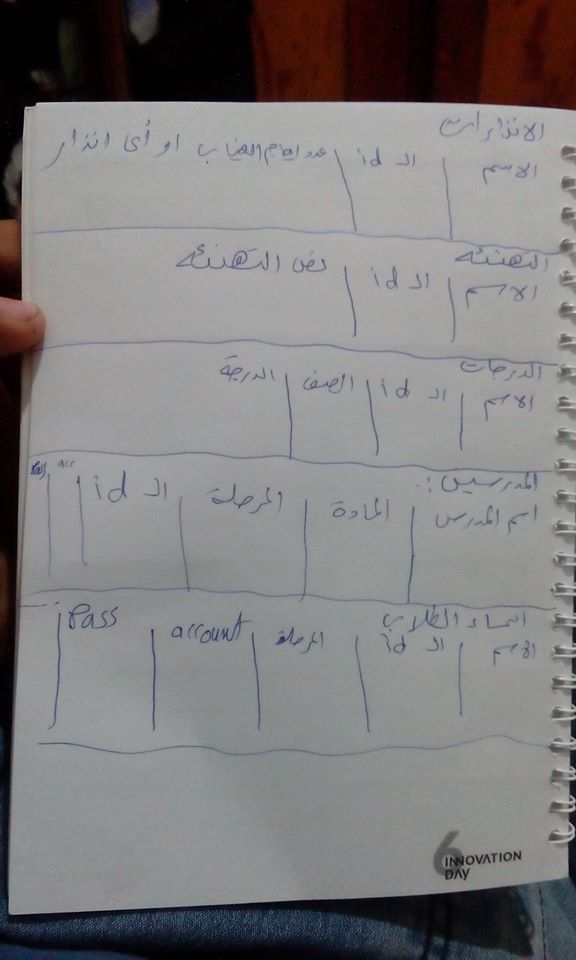 الانذارات
الاسم الـ id عدد ايام الغياب او أى انذار
التهنئه
الاسم الـ id نص التهنئه
الدرجات
الاسم الـ id الصف الدرجة
المدرسين :.
اسم المدرس المادة المرحلة الـ id acc Pass
اسماء الطلاب
الاسم الـ id المرحلة account Pass
6
INNOVATION
DAY